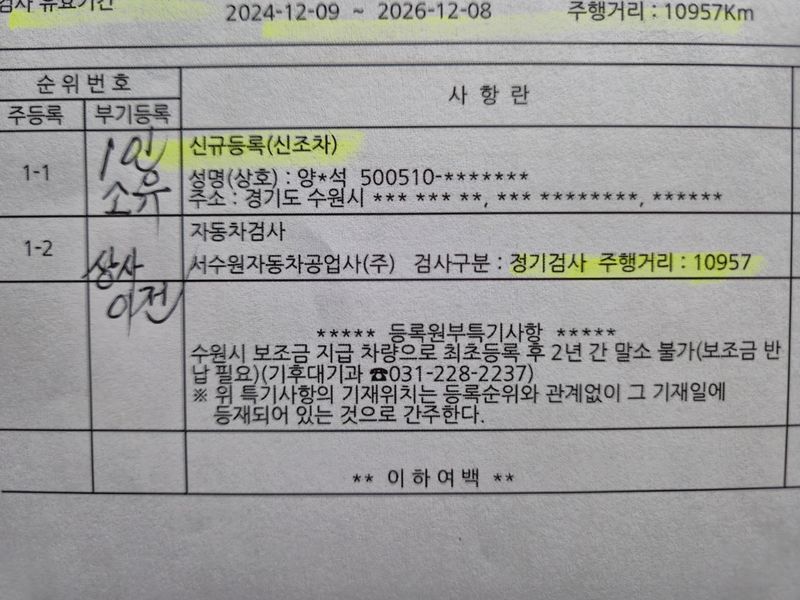 검사 유효기간 2024-12-09 ~ 2026-12-08 주행거리 : 10957Km
순위번호
사 항 란
주등록 부기등록
1-1 1인 소유 신규등록(신조차)
성명(상호) : 양*석 500510-*******
주소 : 경기도 수원시 *** *** **, *** ********, ******
1-2 상사 이전 자동차검사
서수원자동차공업사(주) 검사구분 : 정기검사 주행거리 : 10957
***** 등록원부특기사항 *****
수원시 보조금 지급 차량으로 최초등록 후 2년 간 말소 불가(보조금 반
납 필요)(기후대기과 ☎031-228-2237)
※ 위 특기사항의 기재위치는 등록순위와 관계없이 그 기재일에
등재되어 있는 것으로 간주한다.
** 이 하 여 백 **